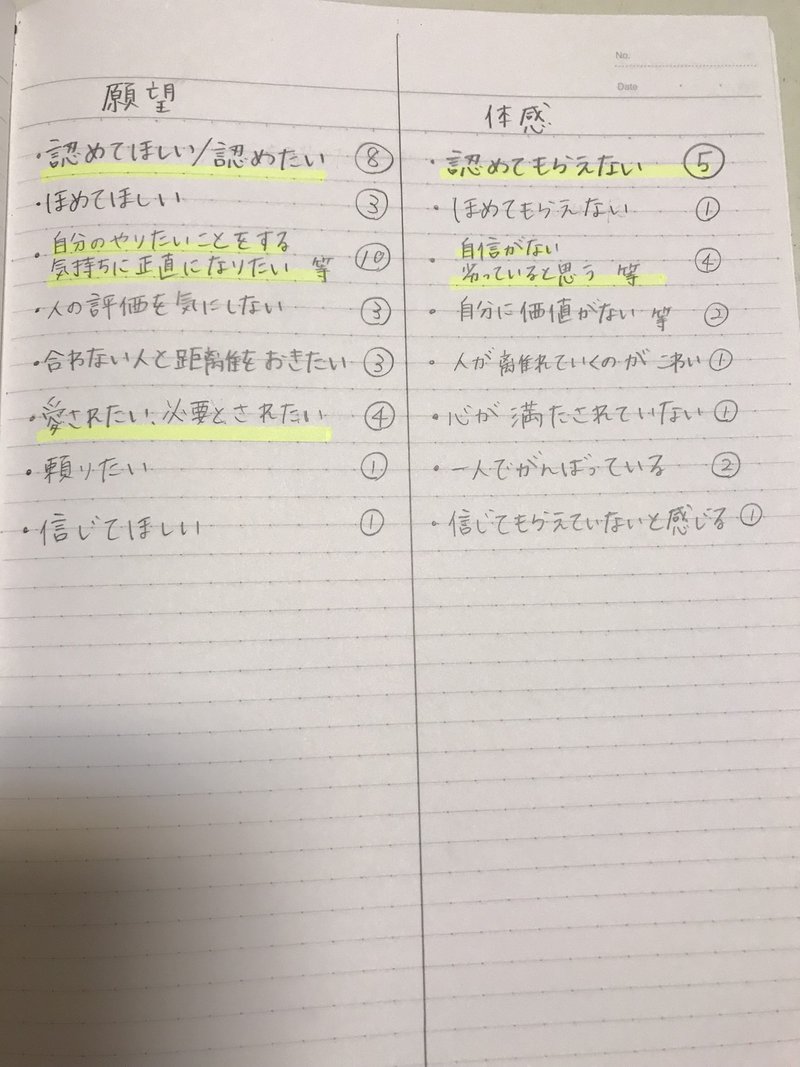 No.
Date
願望
・認めてほしい/認めたい ⑧
・ほめてほしい ③
・自分のやりたいことをする
気持ちに正直になりたい 等 ⑩
・人の評価を気にしない ③
・合わない人と距離をおきたい ③
・愛されたい、必要とされたい ④
・頼りたい ①
・信じてほしい ①
体感
・認めてもらえない ⑤
・ほめてもらえない ①
・自信がない
劣っていると思う 等 ④
・自分に価値がない 等 ②
・人が離れていくのがこわい ①
・心が満たされていない ①
・一人でがんばっている ②
・信じてもらえていないと感じる ①